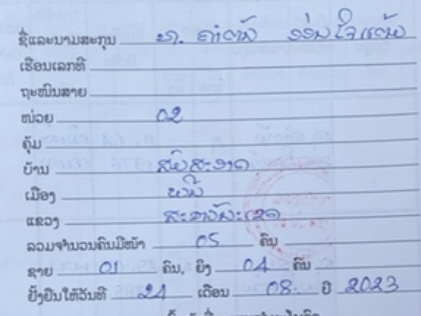 ຊື່ແລະນາມສະກຸນ ທ. ຄຳຕັນ ອ່ອນໃຈແຕ້ມ
ເຮືອນເລກທີ
ຖະໜົນສາຍ
ໜ່ວຍ 02
ຄຸ້ມ
ບ້ານ ສົມສະອາດ
ເມືອງ ພີນ
ແຂວງ ສະຫວັນນະເຂດ
ລວມຈຳນວນຄົນມີໜ້າ 05 ຄົນ
ຊາຍ 01 ຄົນ, ຍິງ 04 ຄົນ
ຢັ້ງຢືນໃຫ້ວັນທີ 24 ເດືອນ 08. ປີ 2023